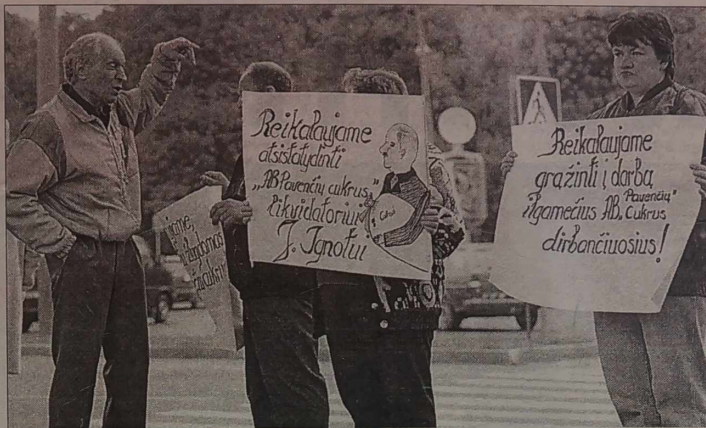 Reikalaujame
atsistatydinti
„AB Pavenčių cukrus"
likvidatoriui
J. Ignotui
Cukrus
Reikalaujame
grąžinti į darbą
ilgamečius AB „Pavenčių"
cukrus
dirbančiuosius!